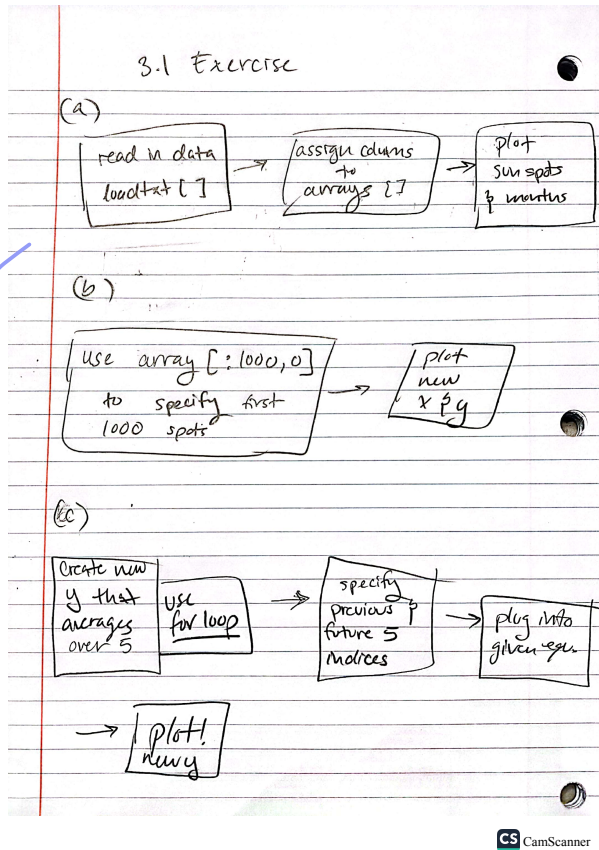 3.1 Exercise
(a)
read in data
loadtxt []
assign colums
to
arrays []
plot
sun spots
& months
(b)
use array [:1000,0]
to specify first
1000 spots
plot
new
x & y
(c)
Create new
y that
averages
over 5
use
for loop
specify
previous &
future 5
indices
plug into
given eqn.
plot!
new y
CS CamScanner